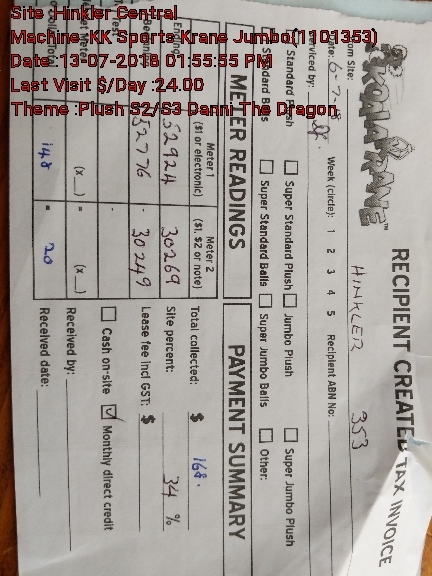 Site :Hinkler Central
Machine :KK Sports Krane Jumbo(1101353)
Date :13-07-2018 01:55:55 PM
Last Visit $/Day :24.00
Theme :Plush S2/S3 Danni The Dragon
KOALA KRANE™
RECIPIENT CREATED TAX INVOICE
From Site: HINKLER 353
Date: 6-7-18 Week (circle): 1 2 3 4 5 Recipient ABN No:
Serviced by:
Standard Plush Super Standard Plush Jumbo Plush Super Jumbo Plush
Standard Balls Super Standard Balls Super Jumbo Balls Other:
METER READINGS
Meter 1 ($1 or electronic)
Meter 2 ($1, $2 or note)
Ending 52924 30269
52776 30249
(x__) = (x__) =
148 = 20
PAYMENT SUMMARY
Total collected: $ 168.
Site percent: 34 %
Lease fee incl GST: $
Cash on-site Monthly direct credit
Received by:
Received date: